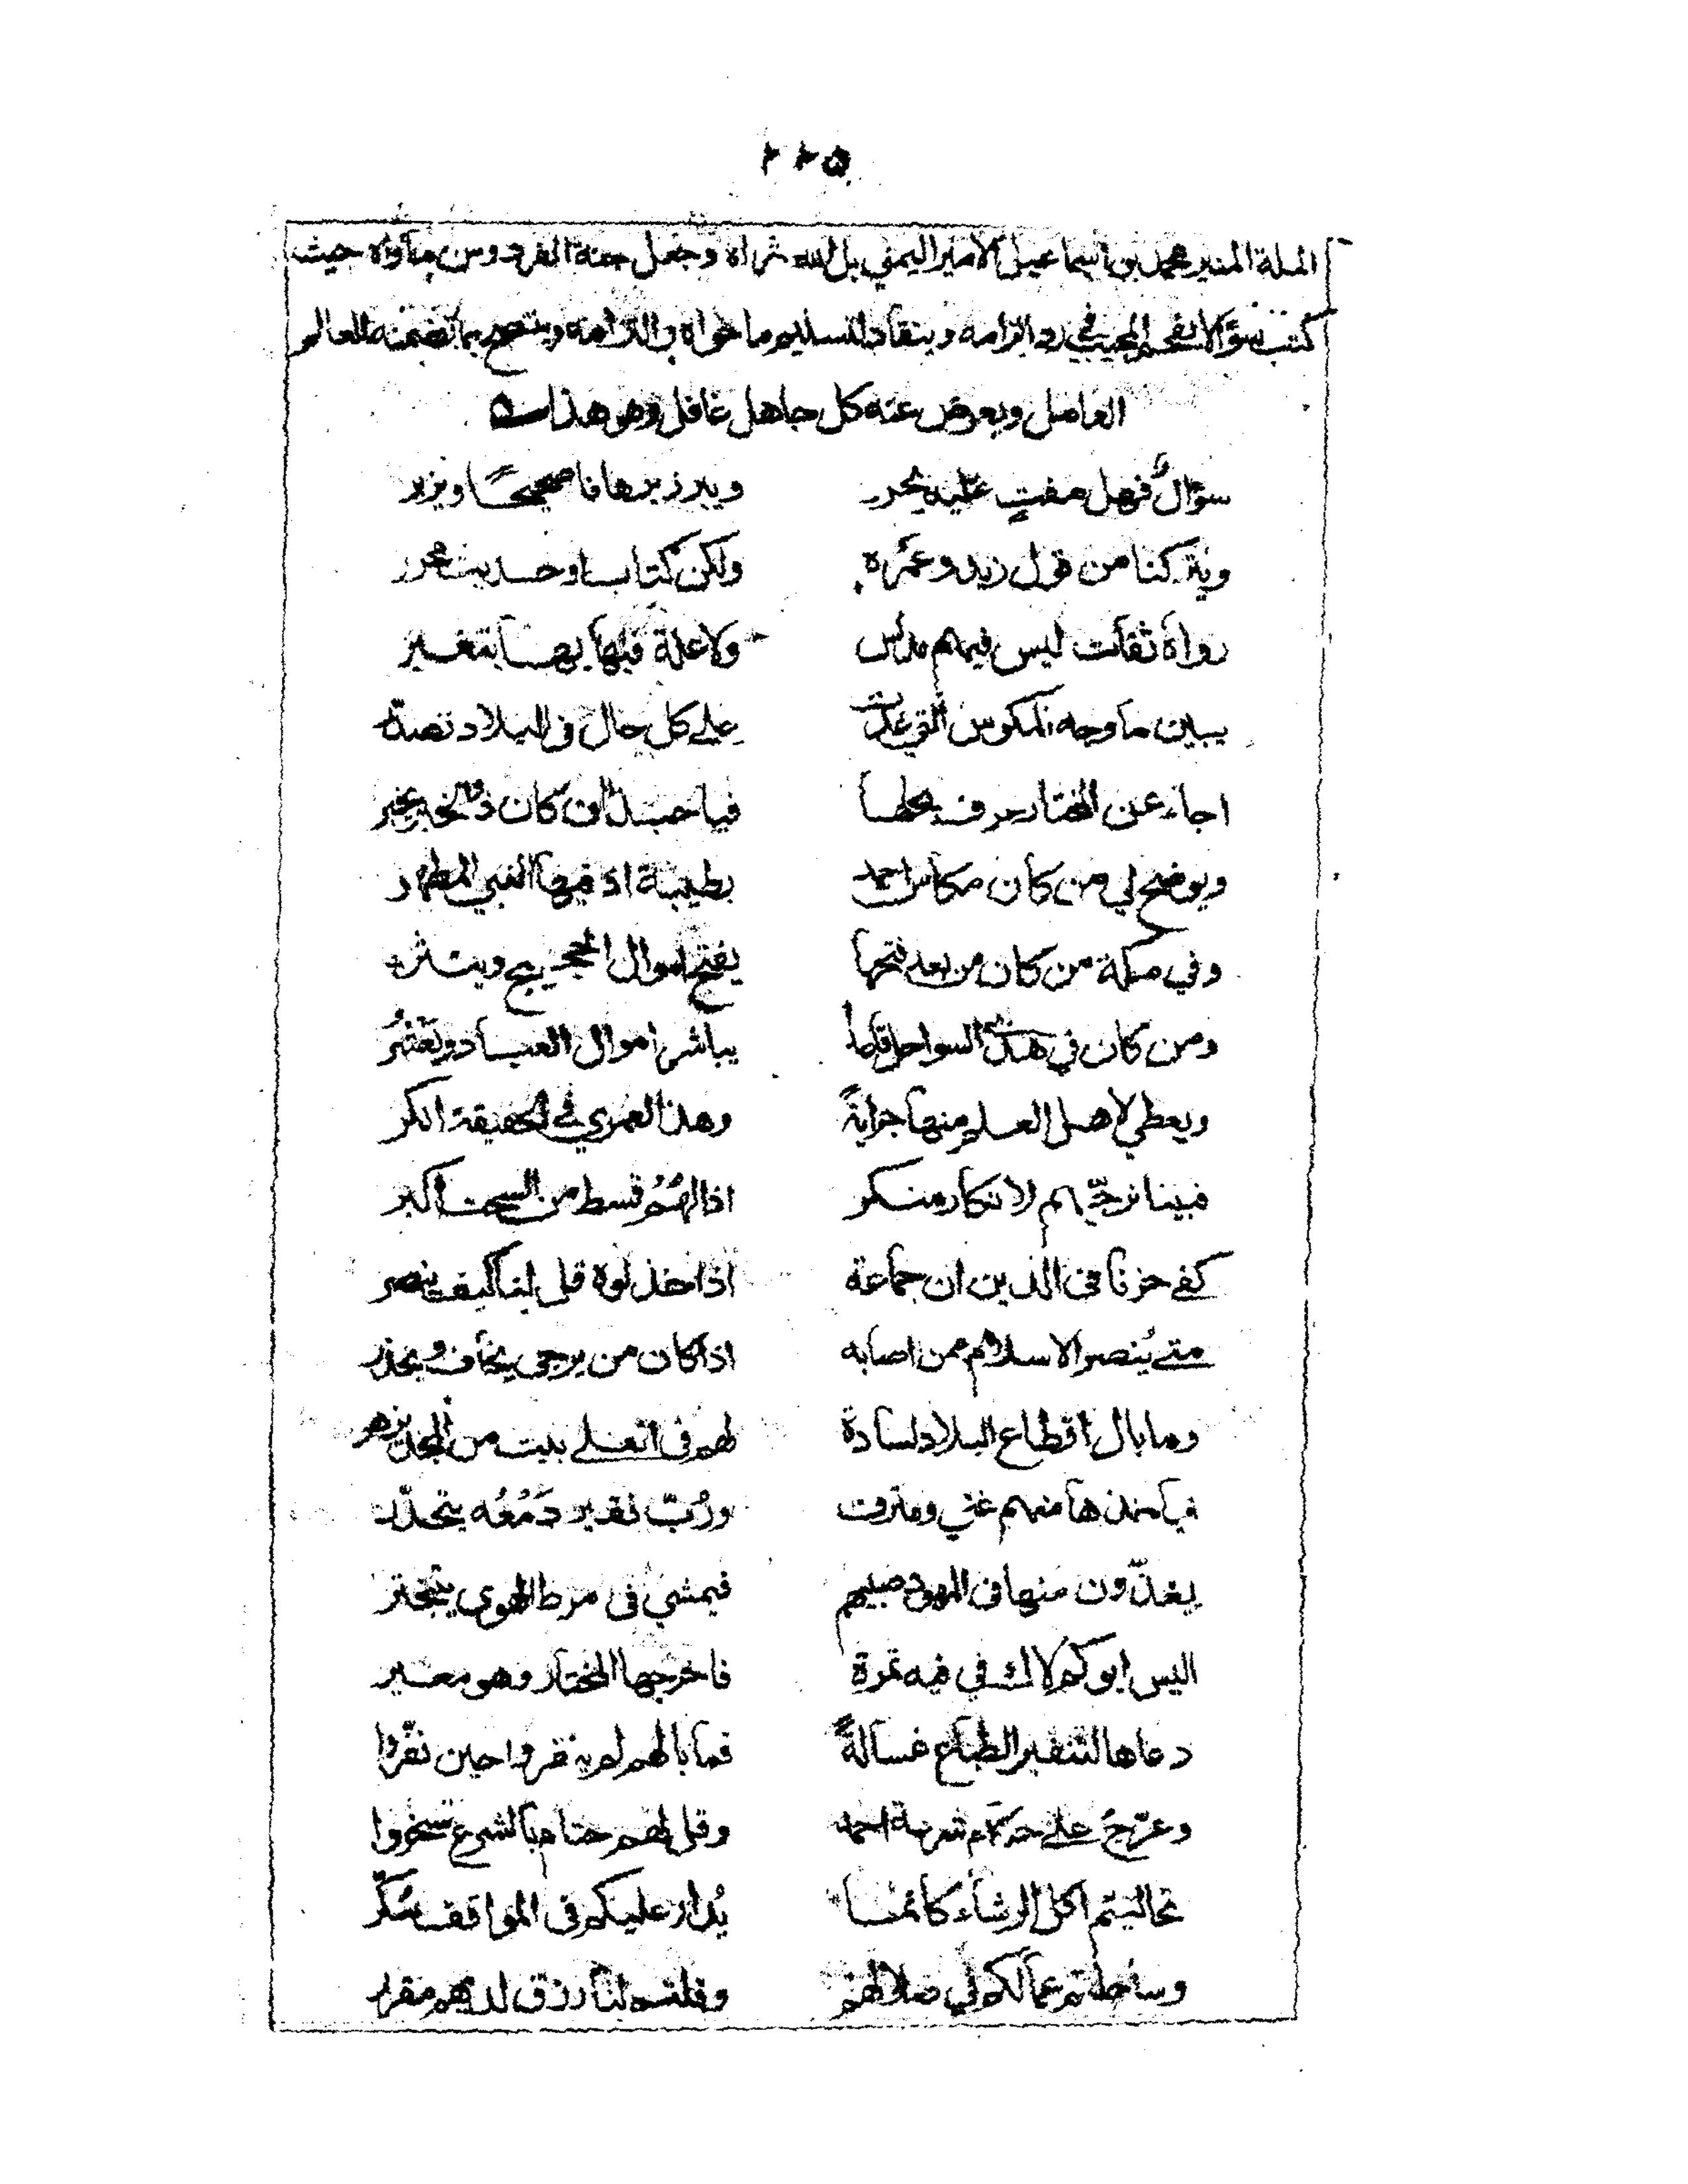 ٢٢٥
الملة المنير محمد بن اسماعيل الامير اليمني بل الله ثراه وجعل جنة الفردوس مأواه حيث
كتب سؤالا يفحم المجيب في رد الزامه وينقاد لتسليم ما حواه والتزامه ويتضح بما تضمنه للعالم
العامل ويعرض عنه كل جاهل غافل وهو هذا
سؤالٌ فهل مفتٍ عليه يحرر ويبرز برهانا صحيحًا ويزبر
ويتركنا من قول زيد وعمره ولكن كتاب او حديث محرر
رواه ثقات ليس فيهم مدلس ولا علة فيها بها يتغير
يبين ما وجه المكوس التي غدت على كل حال في البلاد تصدر
اجاء عن المختار حرف بحلها فيا حبذا ان كان ذا الخبر يخبر
ويوضح لي من كان مكاس احمد بطيبة اذ فيها النبي المطهر
وفي مكة من كان من بعد فتحها يفتح اموال الحجيج وينثر
ومن كان في هذي السواحل قابضا يباشر اموال العباد ويعشرُ
ويعطي لاهل العلم منها جرايةً وهذا لعمري في الحقيقة انكر
فبينا نرجّيهم لانكار منكر اذا لهُمُ قسط من السحت اكبر
كفى حزنا في الدين ان جماعة اذا خذلوه قل لنا كيف ينصر
متى يُنصر الاسلام ممن اصابه اذا كان من يرجى يخاف ويحذر
وما بال اقطاع البلاد لسادة لهم في العلى بيت من المجد يزهر
فيأخذها منهم غني ومترف ورُبّ فقير دَمْعُه يتحدّر
يغذّون منها في المهود صبيهم فيمشي في مرط الهوى يتبختر
اليس ابوكم لاك في فيه تمرة فاخرجها المختار وهو معسر
دعاها لتنفير الطباع غسالةً فما بالهم لم ينفروا حين نفّروا
وعرّج على حكام شرعة احمد وقل لهم حتام بالشرع تسخروا
تحاليتم اكل الرشاء كانما يُدار عليكم في المواقف سُكّر
وسلطتم عمالكم لي ضلالهم وقلتم لنا رزق لديهم مقرر